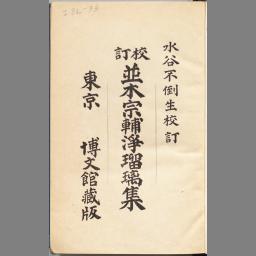 水谷不倒生校訂
校訂並木宗輔淨瑠璃集
東京 博文館藏版